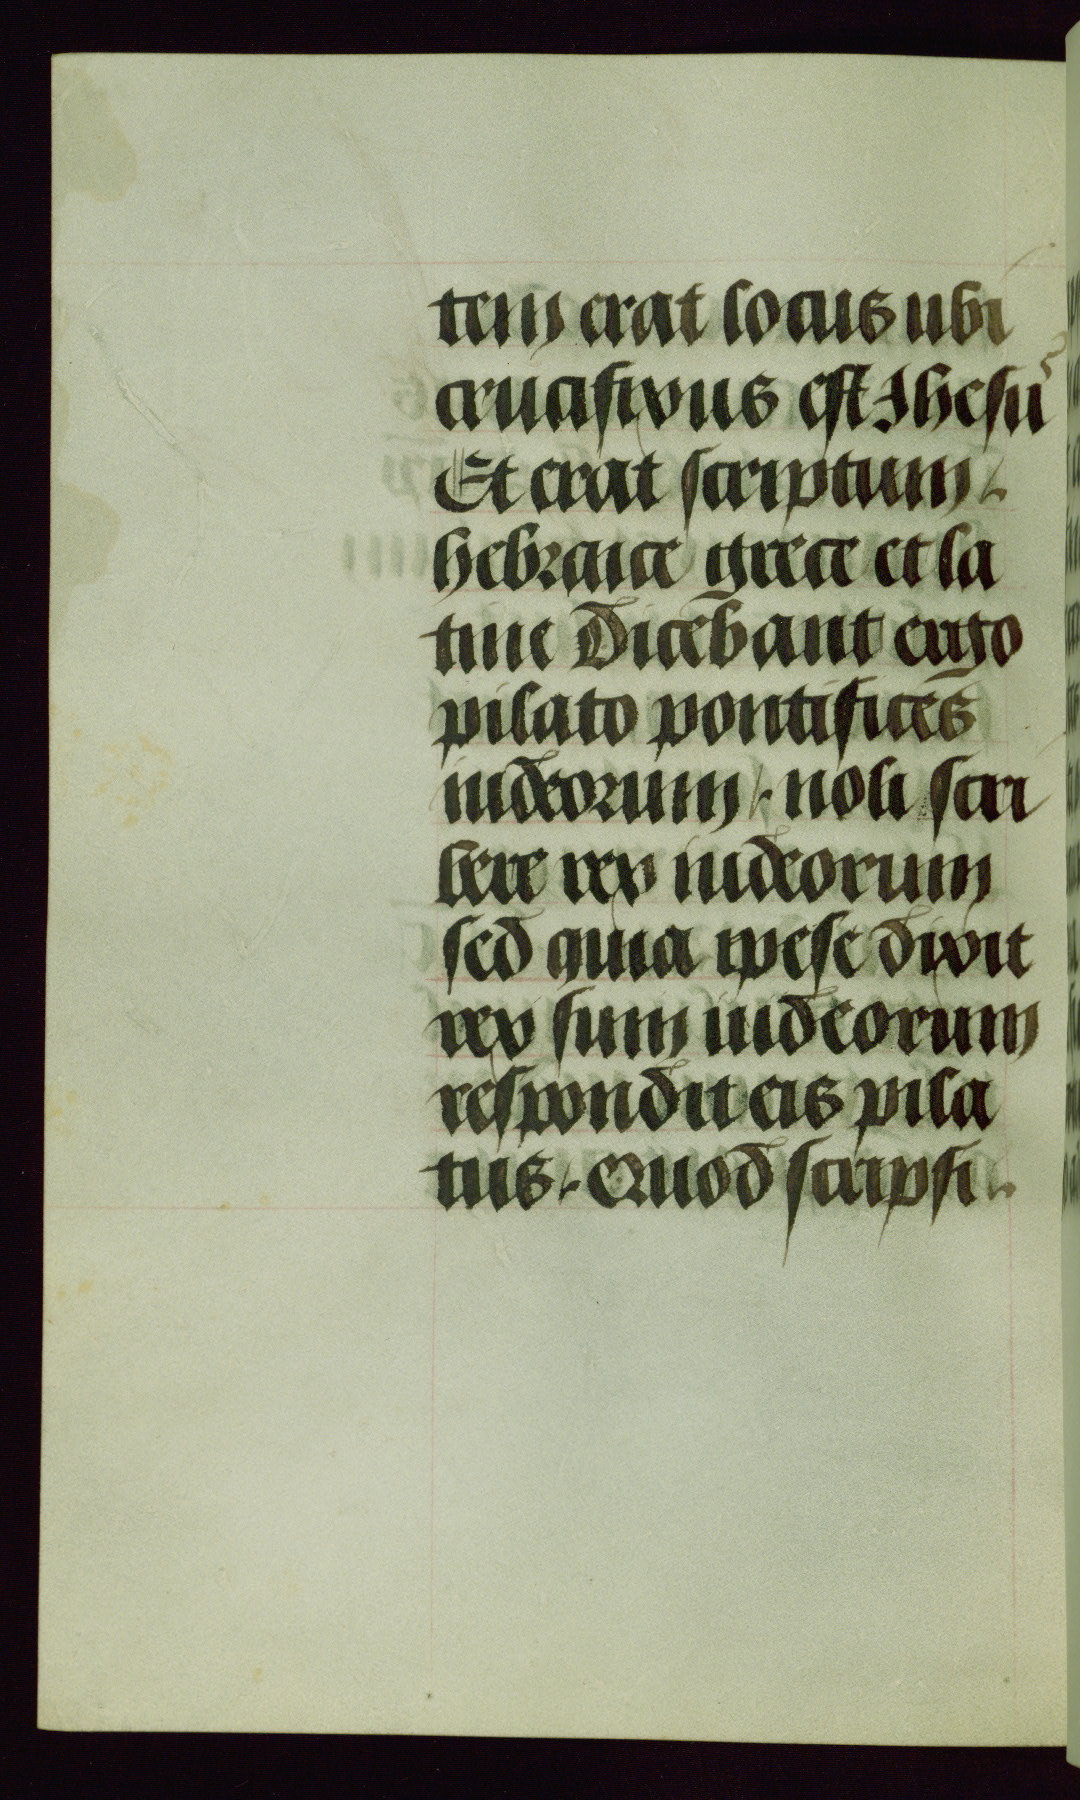 tem erat locus ubi
crucifixus est Ihesus
Et erat scriptum /.
hebraice grece et la
tine Dicebant ergo
pilato pontifices
iudeorum /. noli scri
bere rex iudeorum
sed quia ipese dixit
rex sum iudeorum
respondit eis pila
tus. Quod scripsi.